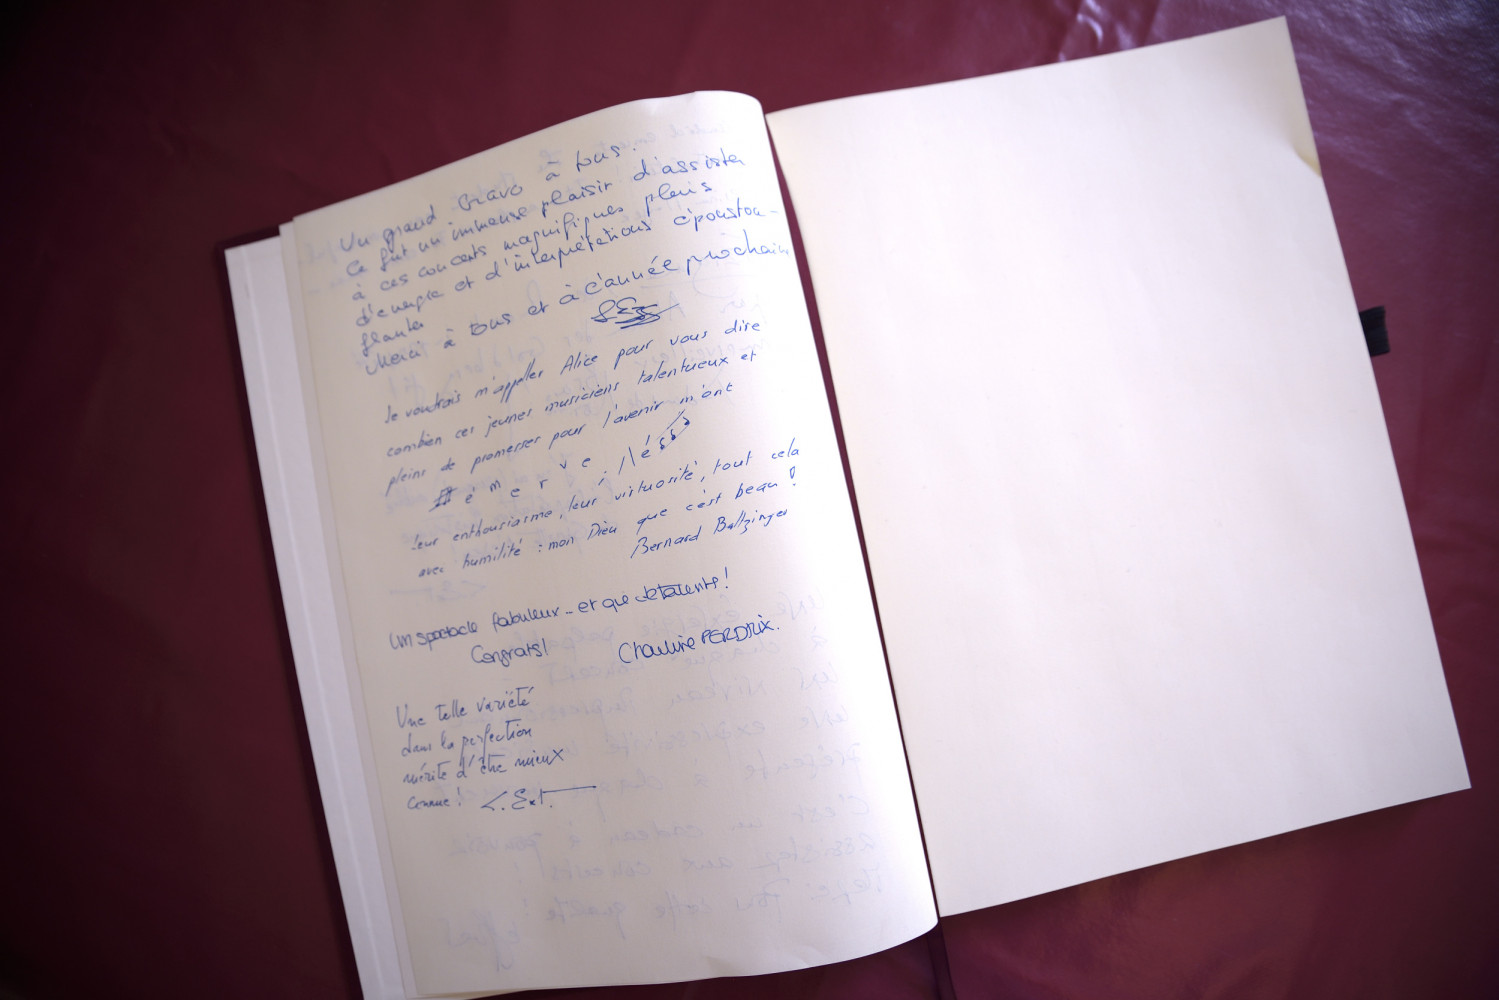 Un grand bravo à tous.
Ce fut un immense plaisir d'assister
à ces concerts magnifiques pleins
d'energie et d'interprétations époustou-
flantes
Merci à tous et à l'année prochaine
Je voudrais m'appeller Alice pour vous dire
combien ces jeunes musiciens talentueux et
pleins de promesses pour l'avenir m'ont
é m e r v e i l l é sss
leur enthousiasme, leur virtuosité, tout cela
avec humilité : mon Dieu que c'est beau !
Bernard Baltzinger
Un spectacle fabuleux - et que de talents !
Congrats! Charline PERDRIX.
Une telle variété
dans la perfection
mérite d'être mieux
connue !